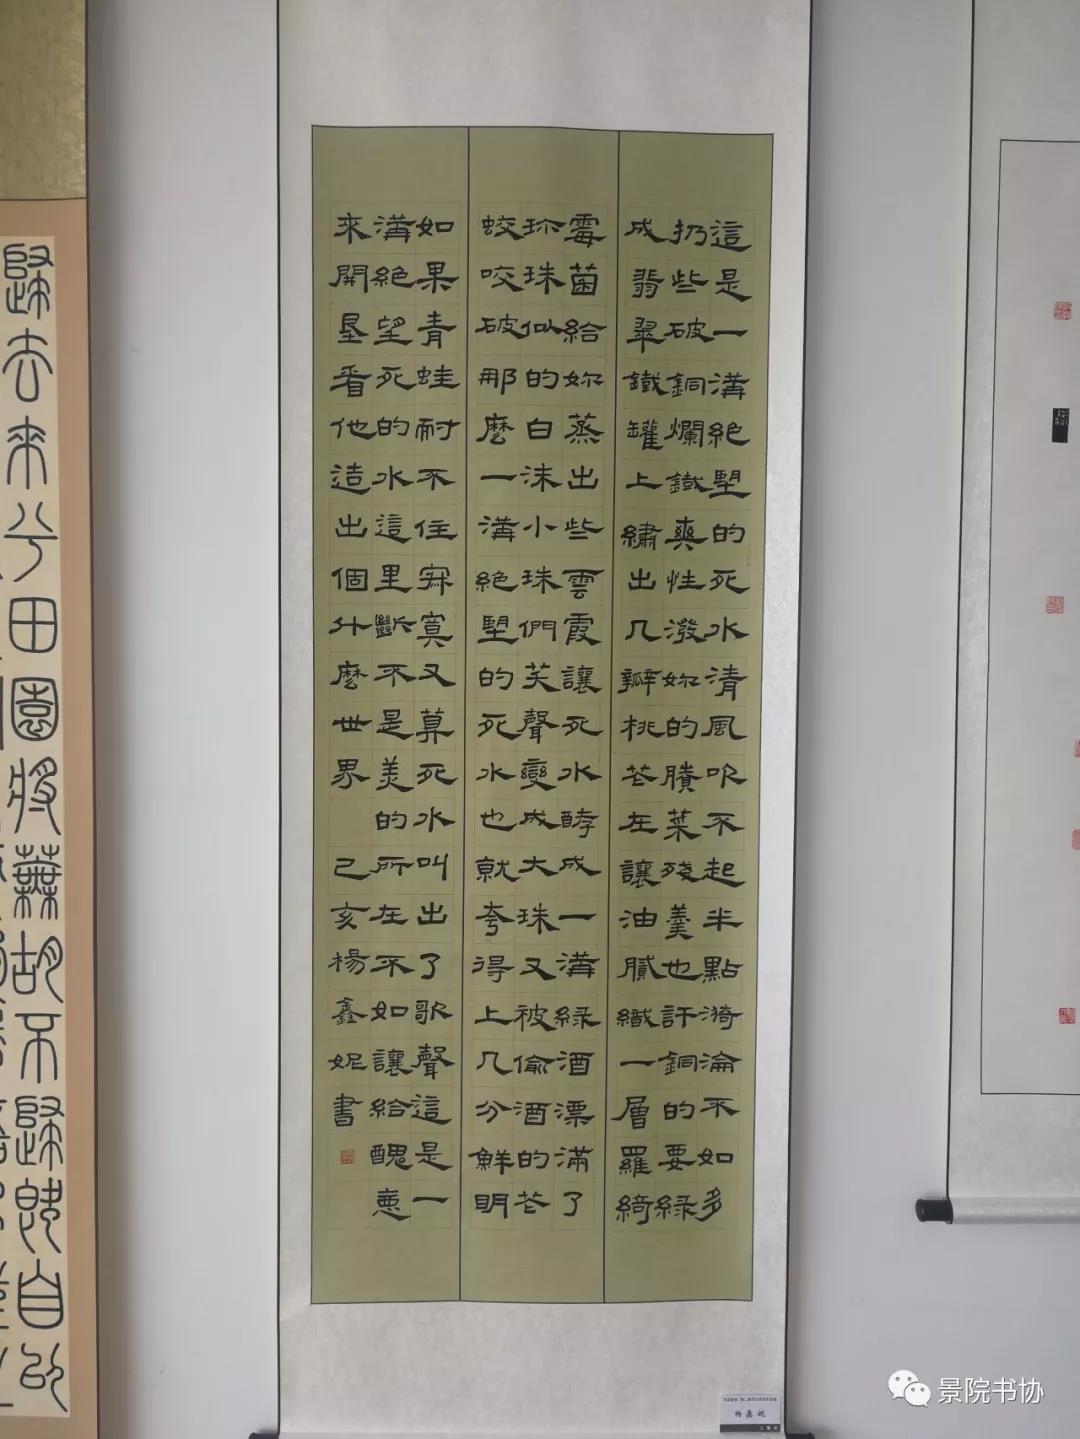 這是一溝絕望的死水清風吹不起半點漪淪不如多
扔些破銅爛鐵爽性潑妳的賸菜殘羹也許銅的要綠
成翡翠鐵罐上繡出几瓣桃花在讓油膩織一層羅綺
霉菌給妳蒸出些雲霞讓死水酵成一溝綠酒漂滿了
珎珠似的白沫小珠們笑聲變成大珠又被偷酒的花
蛟咬破那麼一溝絕望的死水也就夸得上几分鮮明
如果青蛙耐不住寂寞又算死水叫出了歌聲這是一
溝絕望死的水這里斷不是美的所在不如讓給醜惡
來開垦看他造出個什麼世界
己亥楊鑫妮書
歸去來兮田園將蕪胡不歸既自以
杨鑫妮
景院书协